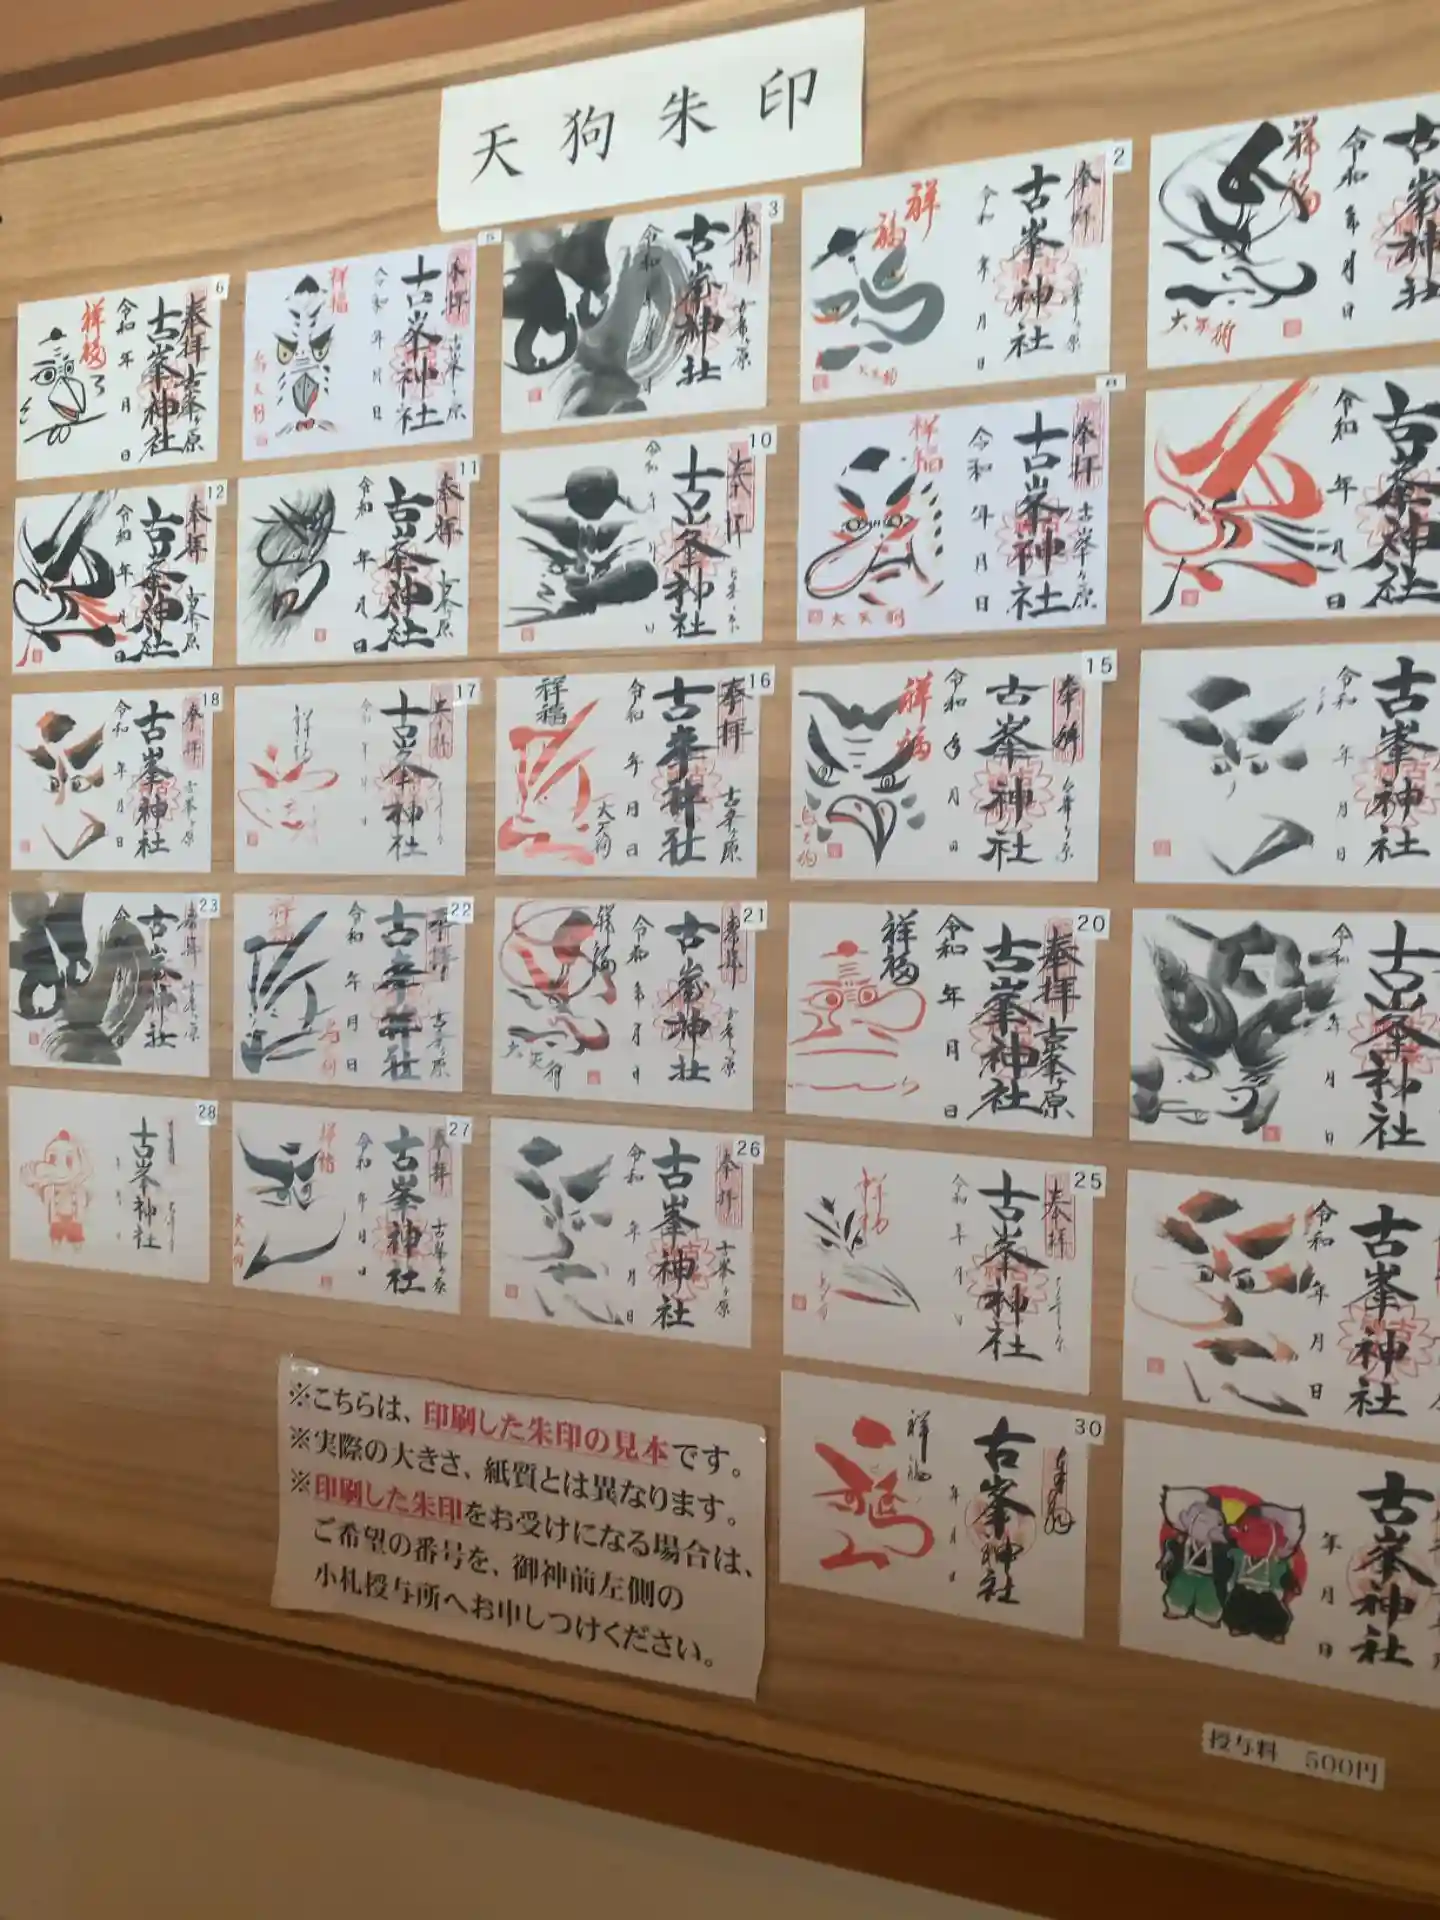 天狗朱印
6
奉拝
古峯ヶ原
古峯神社
令和 年 月 日
祥福
5
奉拝
古峯ヶ原
古峯神社
令和 年 月 日
祥福
烏天狗
3
奉拝
古峯ヶ原
古峯神社
令和
2
奉拝
古峯神社
令和 年 月 日
祥福
大天狗
古峯神社
令和 年 月 日
祥福
大天狗
12
奉拝
古峯ヶ原
古峯神社
令和 年 月 日
11
奉拝
古峯ヶ原
古峯神社
令和 年 月 日
10
奉拝
古峯神社
令和
8
奉拝
古峯ヶ原
古峯神社
令和 年 月 日
祥福
大天狗
古峯神社
令和 年 月 日
18
奉拝
古峯ヶ原
古峯神社
令和 年 月 日
17
奉拝
古峯神社
祥福
16
奉拝
古峯ヶ原
古峯神社
令和 年 月 日
祥福
大天狗
15
奉拝
古峯ヶ原
古峯神社
令和 年 月 日
祥福
古峯神社
令和 年 月 日
23
奉拝
古峯ヶ原
古峯神社
22
奉拝
古峯ヶ原
古峯神社
令和 年 月 日
21
奉拝
古峯ヶ原
古峯神社
令和 年 月 日
祥福
大天狗
20
奉拝
古峯ヶ原
古峯神社
令和 年 月 日
祥福
古峯神社
令和 年 月 日
28
古峯神社
27
奉拝
古峯ヶ原
古峯神社
令和 年 月 日
祥福
大天狗
26
奉拝
古峯ヶ原
古峯神社
令和 年 月 日
25
奉拝
古峯神社
令和 年 月
古峯神社
令和 年 月 日
30
古峯神社
年 月 日
祥福
古峯神社
年 月 日
※こちらは、印刷した朱印の見本です。
※実際の大きさ、紙質とは異なります。
※印刷した朱印をお受けになる場合は、
ご希望の番号を、御神前左側の
小札授与所へお申しつけください。
授与料 500円